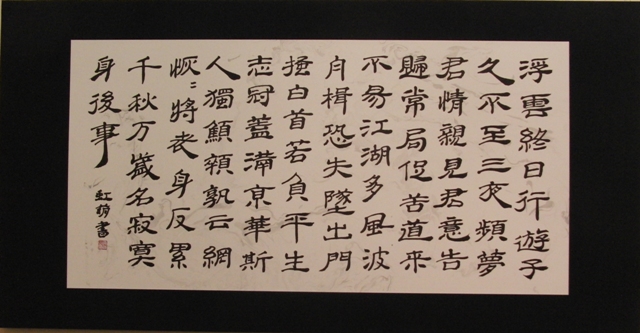 浮雲終日行遊子
久不至三夜頻夢
君情親見君意告
歸常局促苦道來
不易江湖多風波
舟楫恐失墜出門
搔白首若負平生
志冠蓋滿京華斯
人獨顦顇孰云網
恢〻將老身反累
千秋万歲名寂寞
身後事
虹書